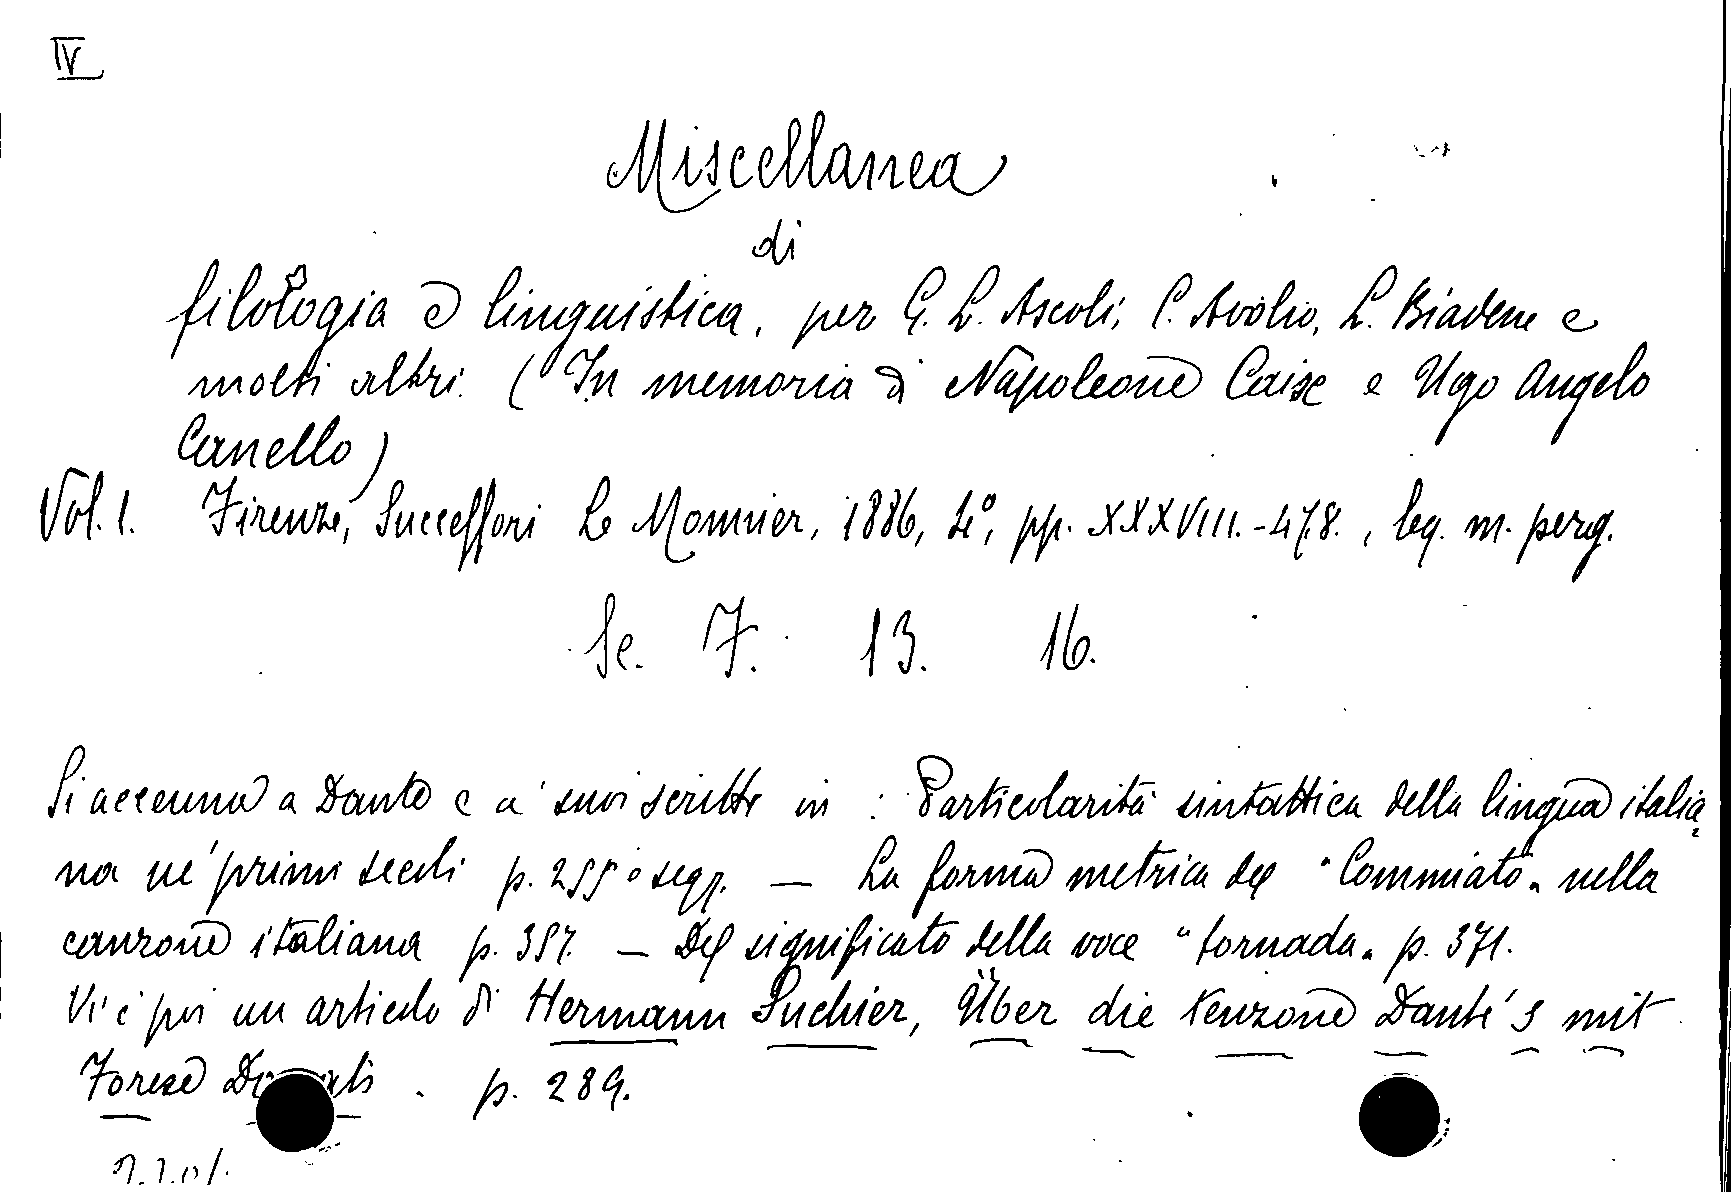 IV
Miscellanea
di
filologia e linguistica, per G. L. Ascoli, C. Avolio, L. Biadene e
molti altri. (In memoria di Napoleone Caix e Ugo Angelo
Canello)
Vol. 1. Firenze, Successori Le Monnier, 1886, 4°, pp. XXXVIII.-478., leg. m. perg.
Se. F. 13. 16.
Si accenna a Dante e a' suoi scritti in : Particolarità sintattica della lingua italia
na ne' primi secoli p. 255 e segg. — La forma metrica del "Commiato" nella
canzone italiana p. 357. — Del significato della voce "tornada" p. 371.
Vi è poi un articolo di Hermann Suchier, Über die Tenzone Dante's mit
Forese Donati . p. 289.